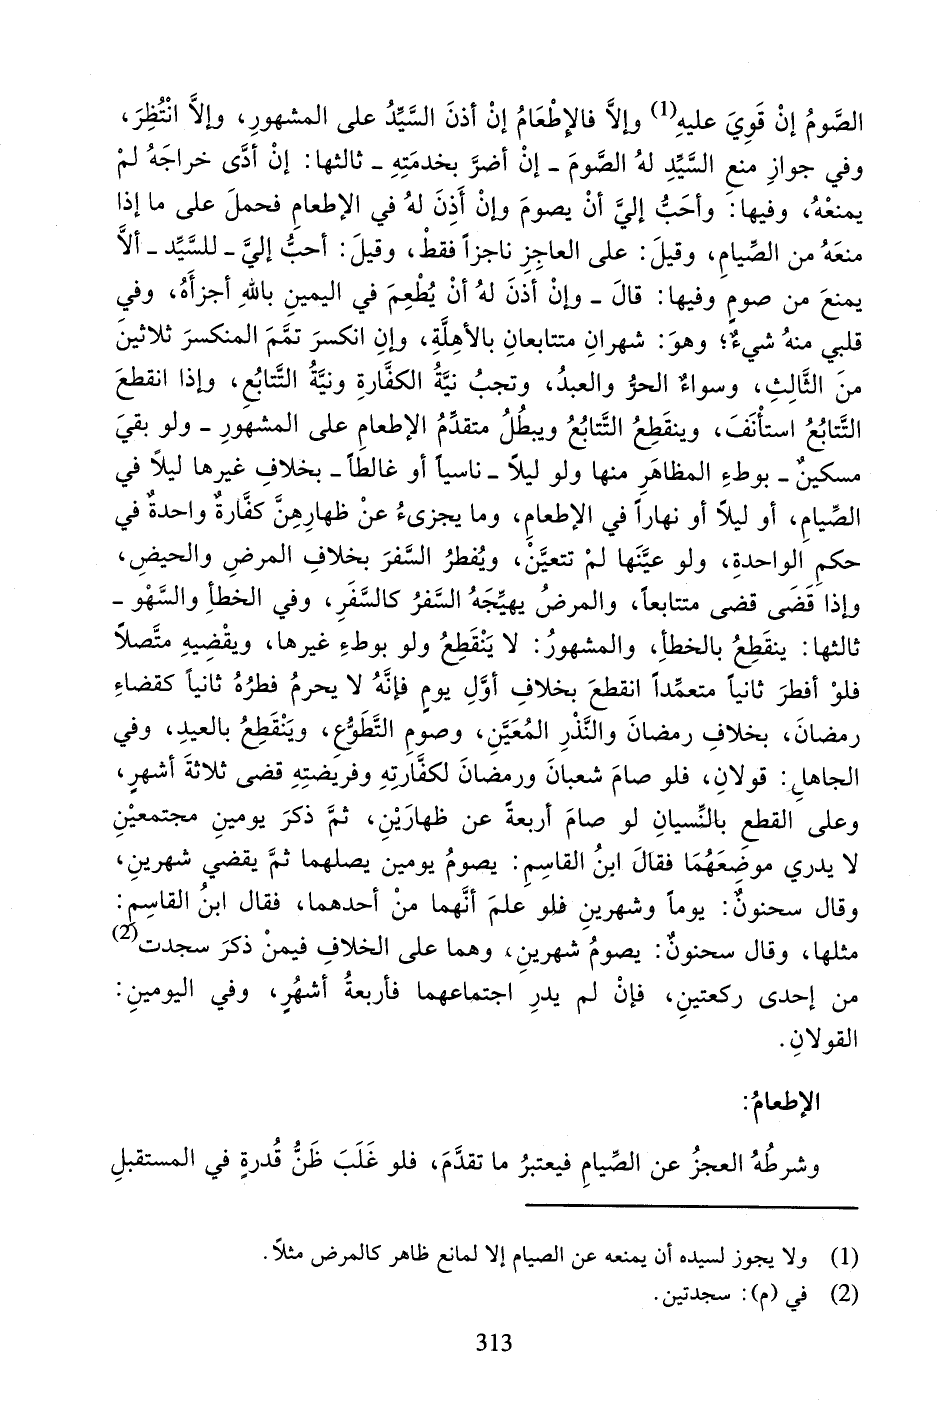 الصَّومُ إنْ قَوِيَ عليهِ(1) وإلاَّ فالإِطْعَامُ إنْ أذنَ السَّيِّدُ على المشهورِ، وإلاَّ انْتُظِرَ،
وفي جوازِ منعِ السَّيِّدِ لهُ الصَّومَ ـ إنْ أضرَّ بخدمَتِهِ ـ ثالثها: إنْ أدَّى خراجَهُ لمْ
يمنعْهُ، وفيها: وأحَبُّ إليَّ أنْ يصومَ وإنْ أَذِنَ لهُ في الإطعامِ فحملَ على ما إذا
منعَهُ من الصِّيامِ، وقيلَ: على العاجزِ ناجزاً فقطْ، وقيلَ: أحبُّ إليَّ ـ للسَّيِّد ـ ألاَّ
يمنعَ من صومٍ وفيها: قالَ ـ وإنْ أذنَ لهُ أنْ يُطْعِمَ في اليمينِ باللهِ أجزأَهُ، وفي
قلبي منهُ شيءٌ؛ وهوَ: شهرانِ متتابعانِ بالأهِلَّةِ، وإنِ انكسرَ تمَّمَ المنكسرَ ثلاثينَ
منَ الثَّالِثِ، وسواءٌ الحرُّ والعبدُ، وتجبُ نيَّةُ الكفَّارةِ ونيَّةُ التَّتابُعِ، وإذا انقطعَ
التَّتابُعُ استأْنَفَ، وينقَطِعُ التَّتابُعُ ويبطُلُ متقدِّمُ الإطعامِ على المشهورِ ـ ولو بقيَ
مسكينٌ ـ بوطءِ المظاهَرِ منها ولو ليلاً ـ ناسياً أو غالطاً ـ بخلافِ غيرها ليلاً في
الصِّيامِ، أو ليلاً أو نهاراً في الإطعامِ، وما يجزىءُ عنْ ظهارِهِنَّ كفَّارةٌ واحدةٌ في
حكمِ الواحدةِ، ولو عيَّنَها لمْ تتعيَّنْ، ويُفطرُ السَّفرَ بخلافِ المرضِ والحيضِ،
وإذا قَضَى قضى متتابعاً، والمرضُ يهيِّجَهُ السَّفرُ كالسَّفَرِ، وفي الخطأِ والسَّهْوِ ـ
ثالثها: ينقَطِعُ بالخطأِ، والمشهورُ: لا يَنْقَطِعُ ولو بوطءِ غيرها، ويقْضِيهِ متَّصلاً
فلوْ أفطرَ ثانياً متعمِّداً انقطعَ بخلافِ أوَّلِ يومٍ فإنَّهُ لا يحرمُ فطرُهُ ثانياً كقضاءِ
رمضانَ، بخلافِ رمضانَ والنَّذْرِ المُعَيَّنِ، وصومِ التَّطَوُّعِ، ويَنْقَطِعُ بالعيدِ، وفي
الجاهلِ: قولانِ، فلو صامَ شعبانَ ورمضانَ لكفَّارتِهِ وفريضتِهِ قضى ثلاثةَ أشهرٍ،
وعلى القطعِ بالنِّسيانِ لو صامَ أربعةً عن ظهارَيْنِ، ثمَّ ذكرَ يومينِ مجتمعيْنِ
لا يدري موضِعَهُمَا فقالَ ابنُ القاسِمِ: يصومُ يومين يصلهما ثمَّ يقضي شهرينِ،
وقال سحنونٌ: يوماً وشهرينِ فلو علمَ أنَّهما منْ أحدهما، فقال ابنُ القاسِمِ:
مثلها، وقال سحنونٌ: يصومُ شهرينِ، وهما على الخلافِ فيمنْ ذكرَ سجدت(2)
من إحدى ركعتينِ، فإنْ لم يدرِ اجتماعهما فأربعةُ أشهُرٍ، وفي اليومينِ:
القولانِ.
الإطعامُ:
وشرطُهُ العجزُ عن الصِّيامِ فيعتبرُ ما تقدَّمَ، فلو غَلَبَ ظَنُّ قُدرةٍ في المستقبلِ
(1) ولا يجوز لسيده أن يمنعه عن الصيام إلا لمانع ظاهر كالمرض مثلاً.
(2) في (م): سجدتين.
313